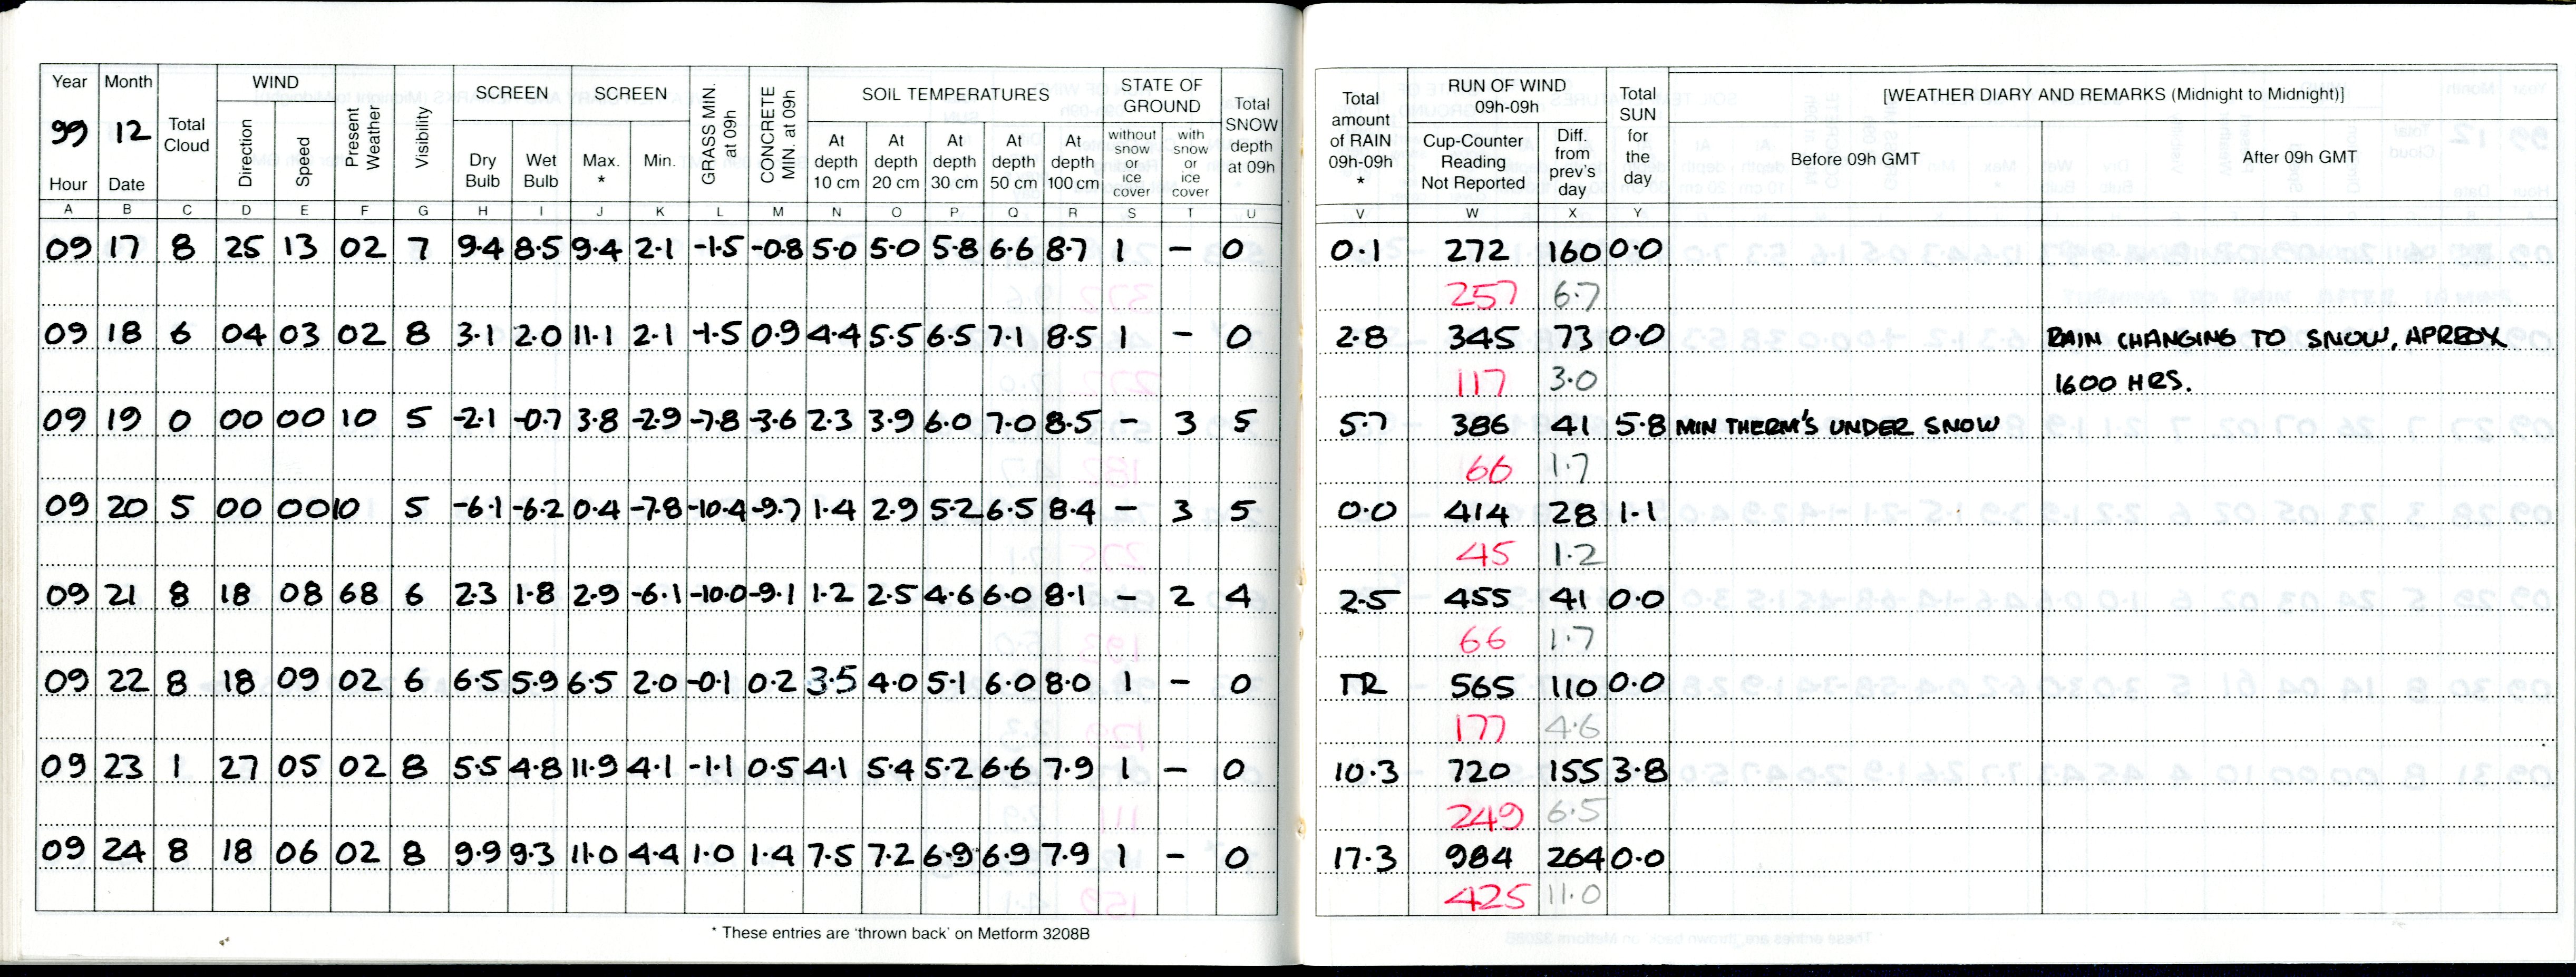 Year Month Total Cloud WIND Present Weather Visibility SCREEN SCREEN GRASS MIN. at 09h CONCRETE MIN. at 09h SOIL TEMPERATURES STATE OF GROUND Total SNOW depth at 09h Total amount of RAIN 09h-09h * RUN OF WIND 09h-09h Total SUN for the day [WEATHER DIARY AND REMARKS (Midnight to Midnight)]
99 12 Direction Speed Dry Bulb Wet Bulb Max. * Min. At depth 10 cm At depth 20 cm At depth 30 cm At depth 50 cm At depth 100 cm without snow or ice cover with snow or ice cover Cup-Counter Reading Not Reported Diff. from prev's day Before 09h GMT After 09h GMT
Hour Date
A B C D E F G H I J K L M N O P Q R S T U V W X Y
09 17 8 25 13 02 7 9.4 8.5 9.4 2.1 -1.5 -0.8 5.0 5.0 5.8 6.6 8.7 1 - 0 0.1 272 160 0.0
257 6.7
09 18 6 04 03 02 8 3.1 2.0 11.1 2.1 -1.5 0.9 4.4 5.5 6.5 7.1 8.5 1 - 0 2.8 345 73 0.0 RAIN CHANGING TO SNOW, APRROX
117 3.0 1600 HRS.
09 19 0 00 00 10 5 -2.1 -0.7 3.8 -2.9 -7.8 -3.6 2.3 3.9 6.0 7.0 8.5 - 3 5 5.7 386 41 5.8 MIN THERM'S UNDER SNOW
66 1.7
09 20 5 00 00 10 5 -6.1 -6.2 0.4 -7.8 -10.4 -9.7 1.4 2.9 5.2 6.5 8.4 - 3 5 0.0 414 28 1.1
45 1.2
09 21 8 18 08 68 6 2.3 1.8 2.9 -6.1 -10.0 -9.1 1.2 2.5 4.6 6.0 8.1 - 2 4 2.5 455 41 0.0
66 1.7
09 22 8 18 09 02 6 6.5 5.9 6.5 2.0 -0.1 0.2 3.5 4.0 5.1 6.0 8.0 1 - 0 TR 565 110 0.0
177 4.6
09 23 1 27 05 02 8 5.5 4.8 11.9 4.1 -1.1 0.5 4.1 5.4 5.2 6.6 7.9 1 - 0 10.3 720 155 3.8
249 6.5
09 24 8 18 06 02 8 9.9 9.3 11.0 4.4 1.0 1.4 7.5 7.2 6.9 6.9 7.9 1 - 0 17.3 984 264 0.0
425 11.0
* These entries are 'thrown back' on Metform 3208B